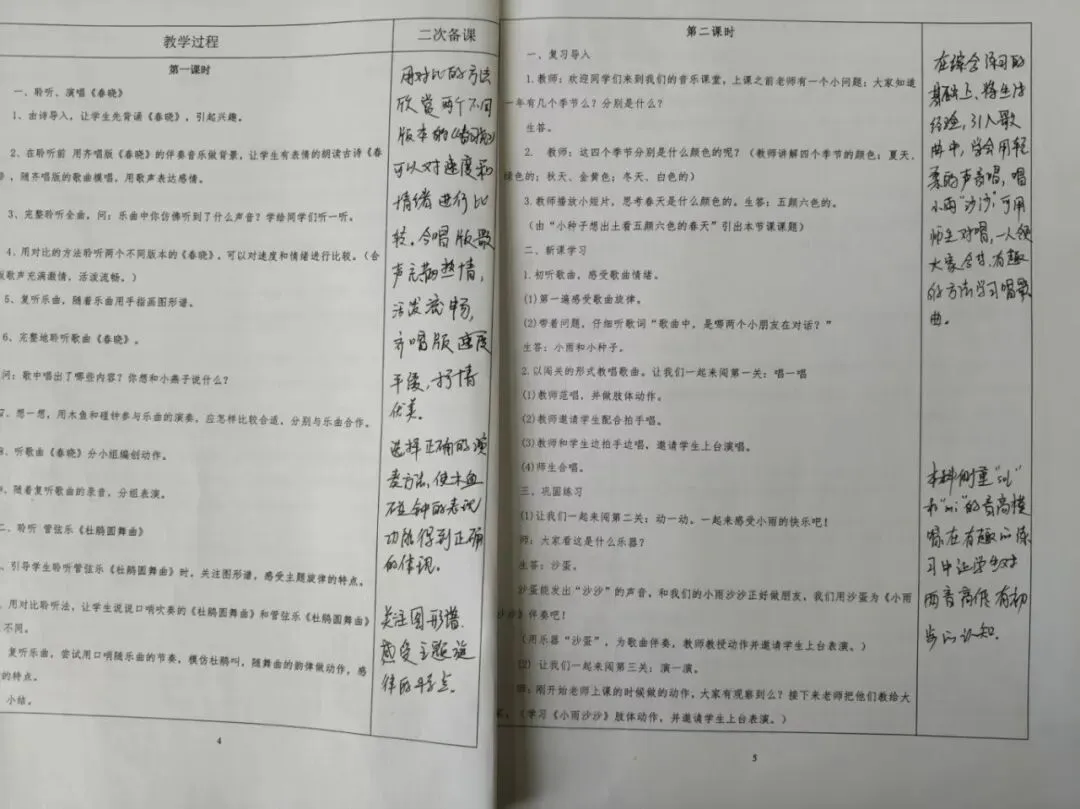 教学过程
第一课时
一、聆听、演唱《春晓》
1、由诗导入，让学生先背诵《春晓》，引起兴趣。
2、在聆听前 用齐唱版《春晓》的伴奏音乐做背景，让学生有表情的朗读古诗《春
》，随齐唱版的歌曲模唱，用歌声表达感情。
3、完整聆听全曲。问：乐曲中你仿佛听到了什么声音？学给同学们听一听。
4、用对比的方法聆听两个不同版本的《春晓》，可以对速度和情绪进行比较。（合
版歌声充满激情，活泼流畅。）
5、复听乐曲，随着乐曲用手指画图形谱。
6、完整地聆听歌曲《春晓》。
问：歌中唱出了哪些内容？你想和小燕子说什么？
、想一想，用木鱼和碰钟参与乐曲的演奏，应怎样比较合适，分别与乐曲合作。
、听歌曲《春晓》分小组编创动作。
、随着复听歌曲的录音，分组表演。
二、聆听 管弦乐《杜鹃圆舞曲》
、引导学生聆听管弦乐《杜鹃圆舞曲》时，关注图形谱，感受主题旋律的特点。
、用对比聆听法，让学生说说口哨吹奏的《杜鹃圆舞曲》和管弦乐《杜鹃圆舞曲》
不同。
复听乐曲，尝试用口哨随乐曲的节奏，模仿杜鹃叫，随舞曲的韵律做动作，感
的特点。
小结。
4
二次备课
用对比的方法
欣赏两个不同
版本的《春晓》
可以对速度和
情绪进行比
较。合唱版歌
声充满热情，
活泼流畅，
齐唱版速度
平缓，抒情
优美。
选择正确的演
奏方法，使木鱼
碰钟的表现
功能得到正确
的体现。
关注图形谱.
感受主题旋
律的特点.
第二课时
一、复习导入
1.教师：欢迎同学们来到我们的音乐课堂，上课之前老师有一个小问题：大家知道
一年有几个季节么？分别是什么？
生答。
2. 教师：这四个季节分别是什么颜色的呢？（教师讲解四个季节的颜色：夏天、
绿色的；秋天、金黄色；冬天、白色的）
3.教师播放小短片，思考春天是什么颜色的。生答：五颜六色的。
（由“小种子想出土看五颜六色的春天”引出本节课课题）
二、新课学习
1.初听歌曲，感受歌曲情绪。
(1)第一遍感受歌曲旋律。
(2)带着问题，仔细听歌词“歌曲中，是哪两个小朋友在对话？”
生答：小雨和小种子。
2.以闯关的形式教唱歌曲。让我们一起来闯第一关：唱一唱
(1)教师范唱，并做肢体动作。
(2)教师邀请学生配合拍手唱。
(3)教师和学生边拍手边唱，邀请学生上台演唱。
(4)师生合唱。
三、巩固练习
(1)让我们一起来闯第二关：动一动。一起来感受小雨的快乐吧！
师：大家看这是什么乐器？
生答：沙蛋。
沙蛋能发出“沙沙”的声音，和我们的小雨沙沙正好做朋友，我们用沙蛋为《小雨
沙沙》伴奏吧！
（用乐器“沙蛋”，为歌曲伴奏，教师教授动作并邀请学生上台表演。）
(2) 让我们一起来闯第三关：演一演。
师：刚开始老师上课的时候做的动作，大家有观察到么？接下来老师把他们教给大
家。（学习《小雨沙沙》肢体动作，并邀请学生上台表演。）
5
在综合练习的
基础上，将生活
经验，引入歌
曲中，学会用轻
柔的声音唱，唱
小雨“沙沙”可用
师生对唱，一人领
大家合等，有趣
的方法学习唱歌
曲。
本科侧重“sol”
和“mi”的音高模
唱在有趣的练
习中让学生对
两音高低有初
步的认知.